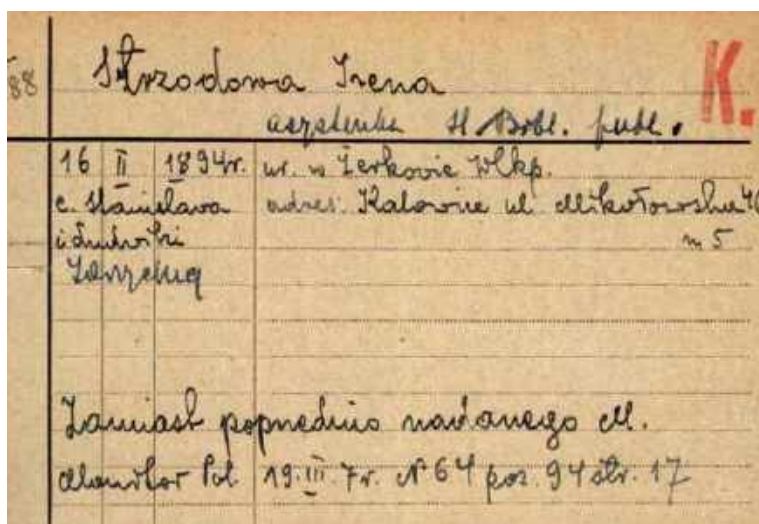 88
Strzodowa Irena
K.
asystentka st. Bibl. publ.
16 II 1894r. ur. w Żerkowie Wlkp.
c. Stanisława adres: Katowice ul. Mikołowska
i Ludwiki m 5
Zamiast poprzednio nadanego M.
Monitor Pol. 19.III.7r. N 64 poz. 94 str. 17